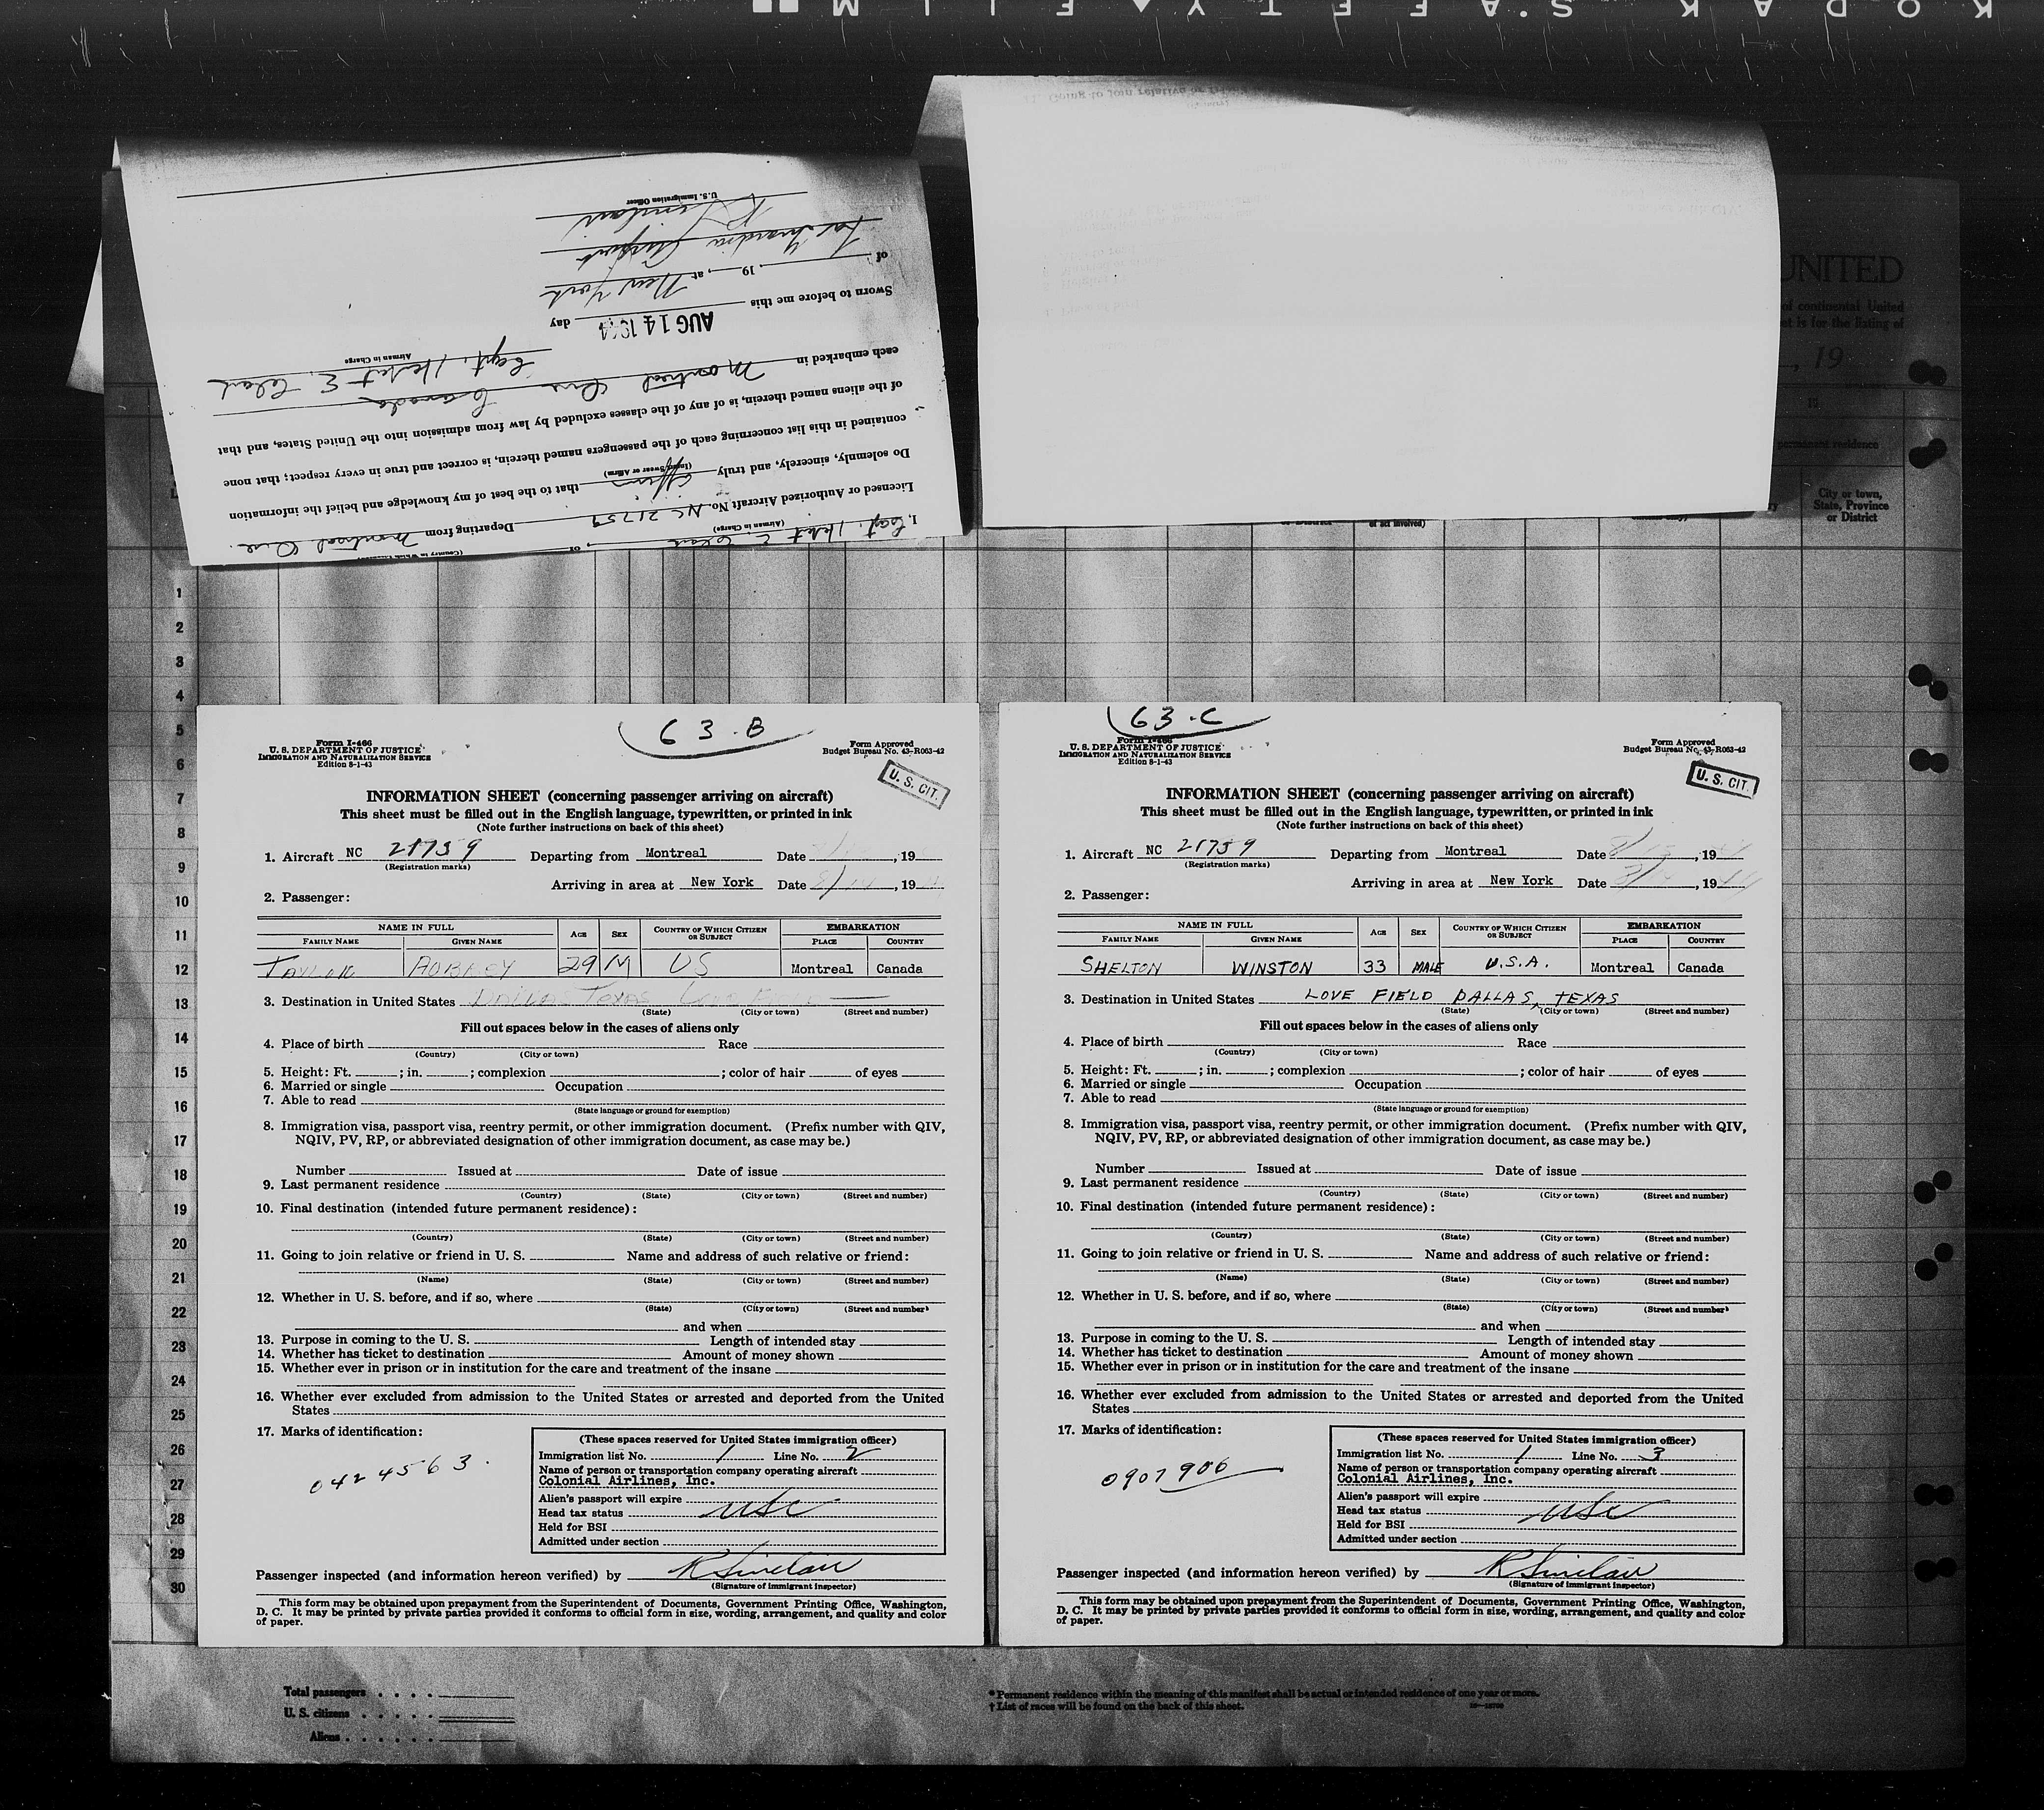 KODAK SAFETY FILM
U.S. Immigration Officer
R Sinclair
of , 19 , at New York
Sworn to before me this AUG 14 1944 day
Airman in Charge
each embarked in Montreal Que Canada
of the aliens named therein, is of any of the classes excluded by law from admission into the United States, and that
contained in this list concerning each of the passengers named therein, is correct and true in every respect; that none
Do solemnly, sincerely, and truly affirm that to the best of my knowledge and belief the information
(Insert Swear or Affirm)
Licensed or Authorized Aircraft No. NC 21759 Departing from Montreal Que.
(Airman in Charge)
I, Capt.
UNITED
of continental United
et is for the listing of
, 19
permanent residence
City or town,
State, Province
or District
of act involved)
1
2
3
4
5
6
7
8
9
10
11
12
13
14
15
16
17
18
19
20
21
22
23
24
25
26
27
28
29
30
63-B
Form I-466
U. S. DEPARTMENT OF JUSTICE
IMMIGRATION AND NATURALIZATION SERVICE
Edition 8-1-43
Form Approved
Budget Bureau No. 43-R063-42
U. S. CIT.
INFORMATION SHEET (concerning passenger arriving on aircraft)
This sheet must be filled out in the English language, typewritten, or printed in ink
(Note further instructions on back of this sheet)
1. Aircraft NC 21759 Departing from Montreal Date , 19
(Registration marks)
Arriving in area at New York Date 8/14 , 19
2. Passenger:
NAME IN FULL AGE SEX COUNTRY OF WHICH CITIZEN OR SUBJECT EMBARKATION
FAMILY NAME GIVEN NAME PLACE COUNTRY
TAYLOR AUBREY 29 M US Montreal Canada
3. Destination in United States DALLAS TEXAS LOVE FIELD
(State) (City or town) (Street and number)
Fill out spaces below in the cases of aliens only
4. Place of birth Race
(Country) (City or town)
5. Height: Ft. ; in. ; complexion ; color of hair of eyes
6. Married or single Occupation
7. Able to read
(State language or ground for exemption)
8. Immigration visa, passport visa, reentry permit, or other immigration document. (Prefix number with QIV,
NQIV, PV, RP, or abbreviated designation of other immigration document, as case may be.)
Number Issued at Date of issue
9. Last permanent residence
(Country) (State) (City or town) (Street and number)
10. Final destination (intended future permanent residence):
(Country) (State) (City or town) (Street and number)
11. Going to join relative or friend in U. S. Name and address of such relative or friend:
(Name) (State) (City or town) (Street and number)
12. Whether in U. S. before, and if so, where
(State) (City or town) (Street and number)
and when
13. Purpose in coming to the U. S. Length of intended stay
14. Whether has ticket to destination Amount of money shown
15. Whether ever in prison or in institution for the care and treatment of the insane
16. Whether ever excluded from admission to the United States or arrested and deported from the United
States
17. Marks of identification:
0424563.
(These spaces reserved for United States immigration officer)
Immigration list No. 1 Line No. 2
Name of person or transportation company operating aircraft
Colonial Airlines, Inc.
Alien's passport will expire
Head tax status USC
Held for BSI
Admitted under section
Passenger inspected (and information hereon verified) by R Sinclair
(Signature of immigrant inspector)
This form may be obtained upon prepayment from the Superintendent of Documents, Government Printing Office, Washington,
D. C. It may be printed by private parties provided it conforms to official form in size, wording, arrangement, and quality and color
of paper.
63-C
Form I-466
U. S. DEPARTMENT OF JUSTICE
IMMIGRATION AND NATURALIZATION SERVICE
Edition 8-1-43
Form Approved
Budget Bureau No. 43-R063-42
U. S. CIT.
INFORMATION SHEET (concerning passenger arriving on aircraft)
This sheet must be filled out in the English language, typewritten, or printed in ink
(Note further instructions on back of this sheet)
1. Aircraft NC 21759 Departing from Montreal Date , 19
(Registration marks)
Arriving in area at New York Date , 1944
2. Passenger:
NAME IN FULL AGE SEX COUNTRY OF WHICH CITIZEN OR SUBJECT EMBARKATION
FAMILY NAME GIVEN NAME PLACE COUNTRY
SHELTON WINSTON 33 MALE U.S.A. Montreal Canada
3. Destination in United States LOVE FIELD DALLAS, TEXAS
(State) (City or town) (Street and number)
Fill out spaces below in the cases of aliens only
4. Place of birth Race
(Country) (City or town)
5. Height: Ft. ; in. ; complexion ; color of hair of eyes
6. Married or single Occupation
7. Able to read
(State language or ground for exemption)
8. Immigration visa, passport visa, reentry permit, or other immigration document. (Prefix number with QIV,
NQIV, PV, RP, or abbreviated designation of other immigration document, as case may be.)
Number Issued at Date of issue
9. Last permanent residence
(Country) (State) (City or town) (Street and number)
10. Final destination (intended future permanent residence):
(Country) (State) (City or town) (Street and number)
11. Going to join relative or friend in U. S. Name and address of such relative or friend:
(Name) (State) (City or town) (Street and number)
12. Whether in U. S. before, and if so, where
(State) (City or town) (Street and number)
and when
13. Purpose in coming to the U. S. Length of intended stay
14. Whether has ticket to destination Amount of money shown
15. Whether ever in prison or in institution for the care and treatment of the insane
16. Whether ever excluded from admission to the United States or arrested and deported from the United
States
17. Marks of identification:
0907906
(These spaces reserved for United States immigration officer)
Immigration list No. 1 Line No. 3
Name of person or transportation company operating aircraft
Colonial Airlines, Inc.
Alien's passport will expire
Head tax status USC
Held for BSI
Admitted under section
Passenger inspected (and information hereon verified) by R Sinclair
(Signature of immigrant inspector)
This form may be obtained upon prepayment from the Superintendent of Documents, Government Printing Office, Washington,
D. C. It may be printed by private parties provided it conforms to official form in size, wording, arrangement, and quality and color
of paper.
Total passengers
U. S. citizens
Aliens
* Permanent residence within the meaning of this manifest shall be actual or intended residence of one year or more.
† List of races will be found on the back of this sheet.